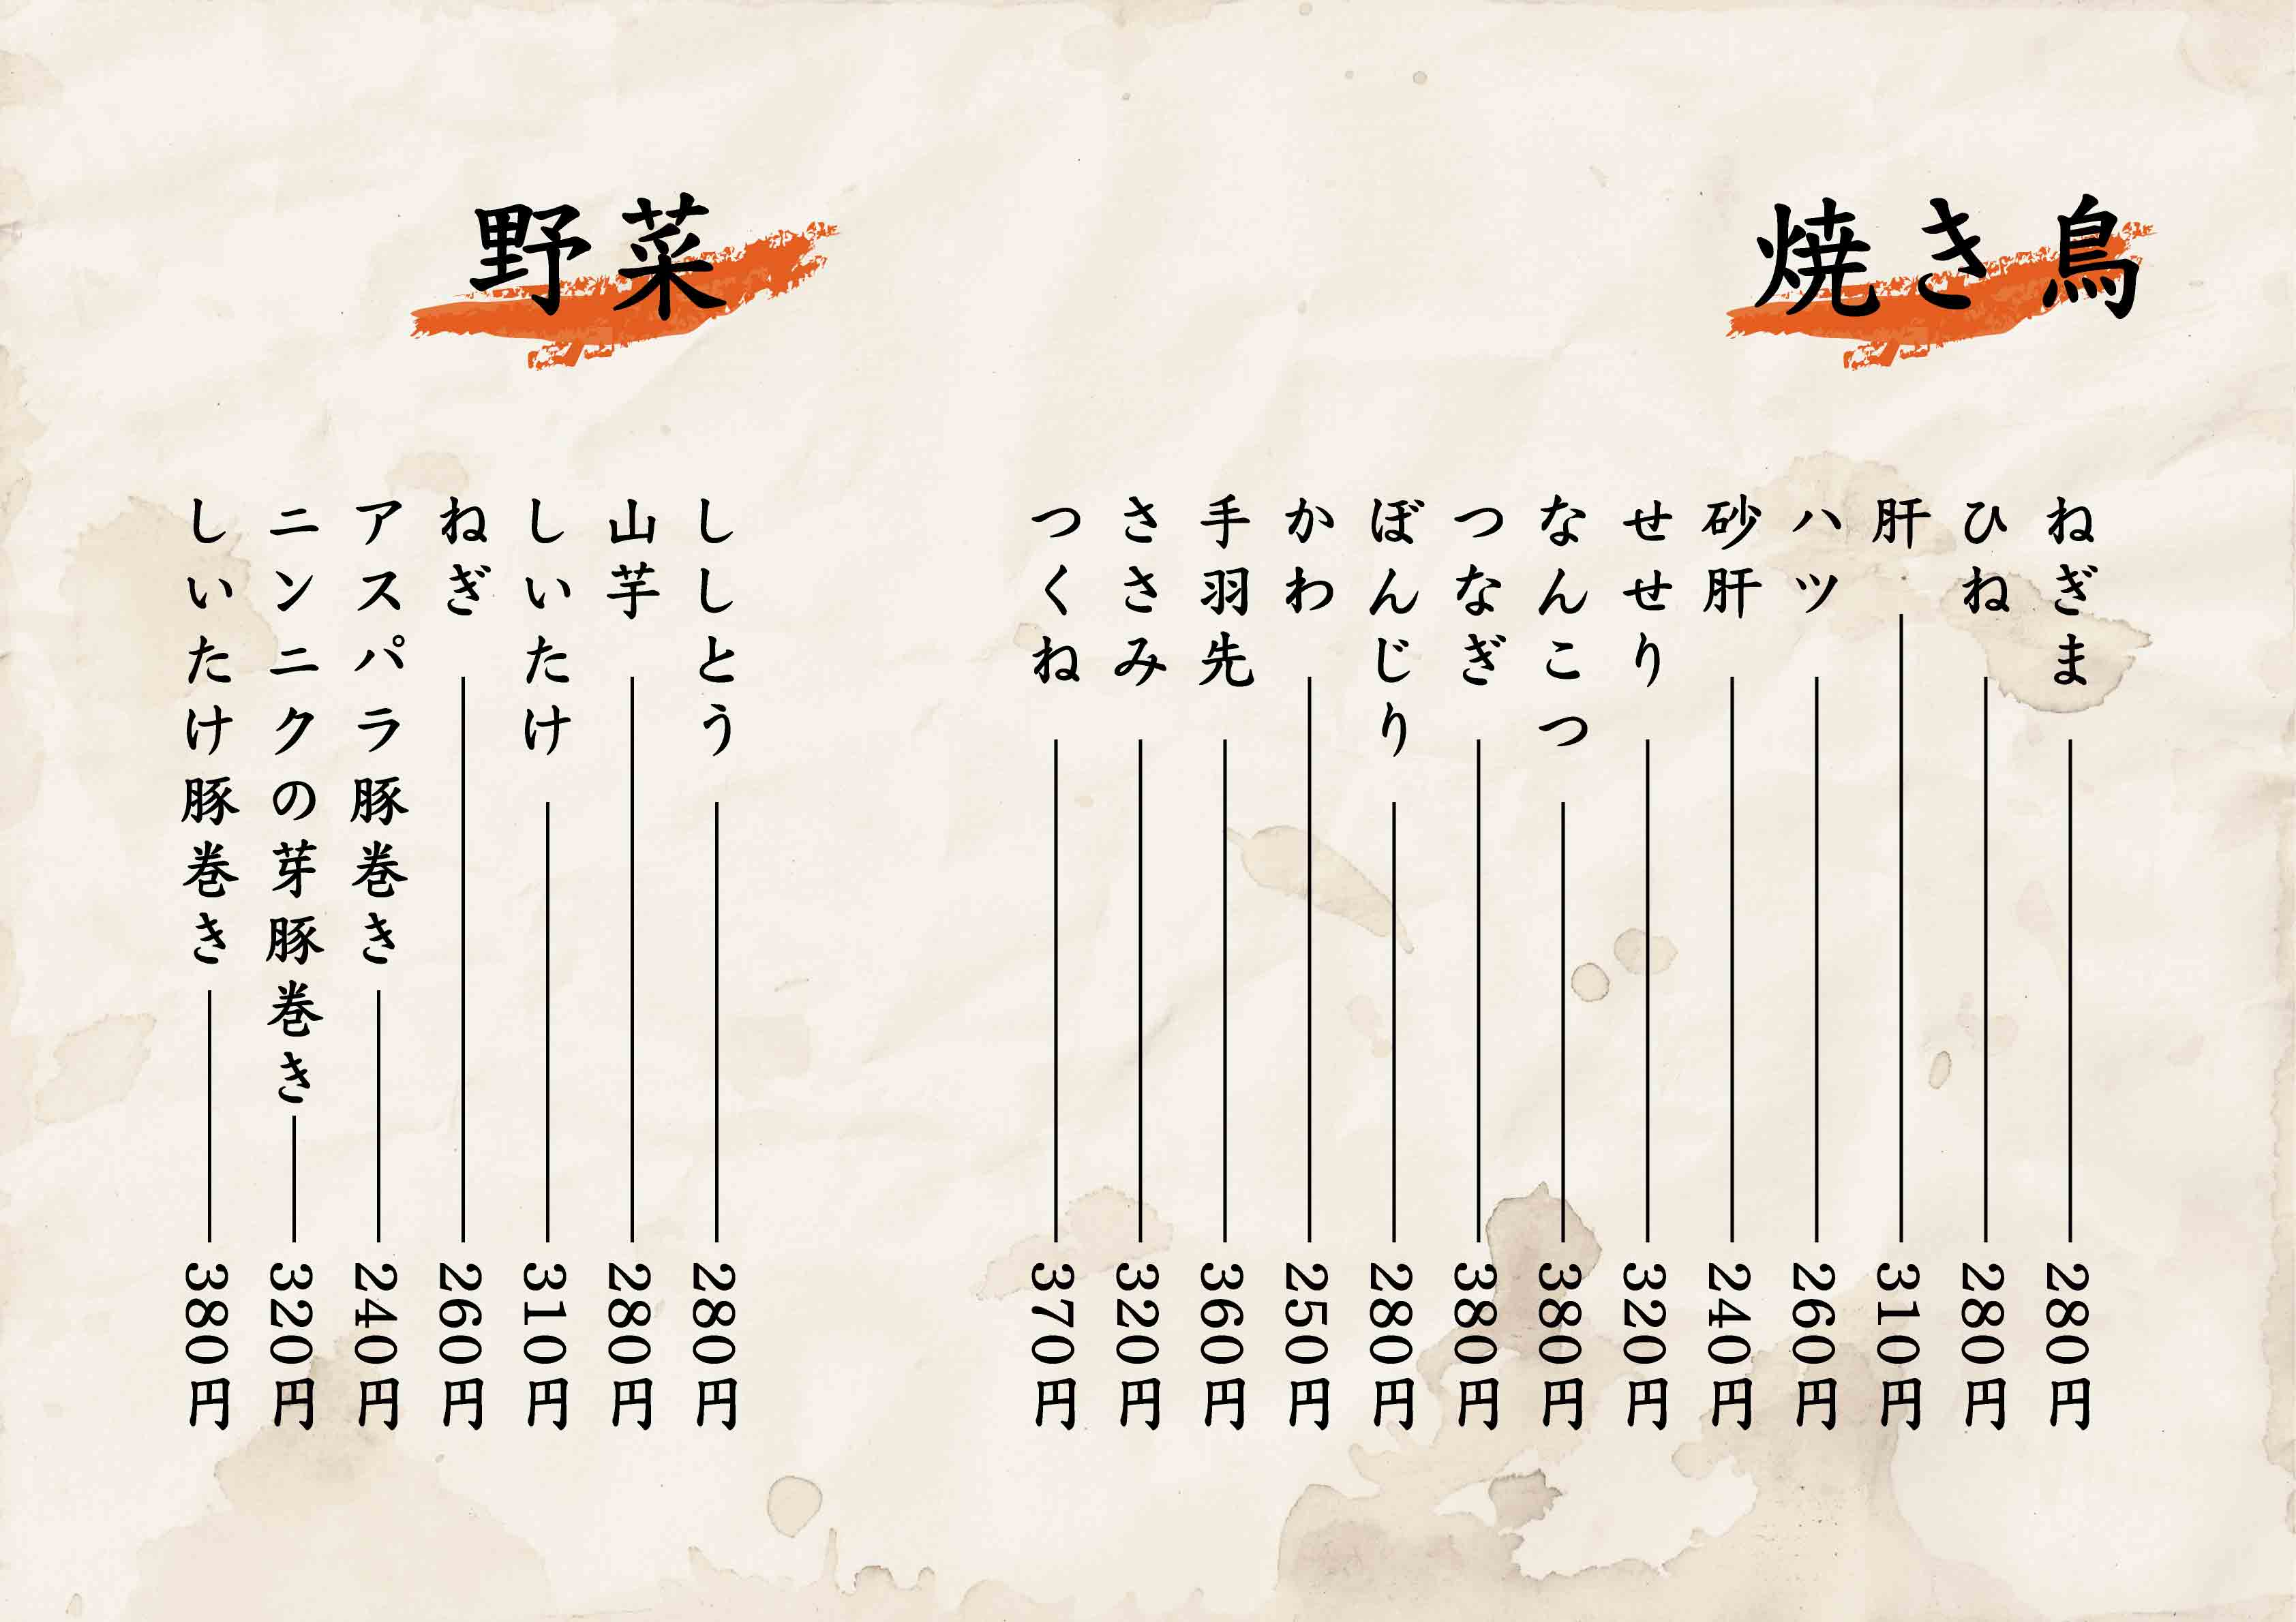 焼き鳥
ねぎま 280円
ひね 280円
肝 310円
ハツ 260円
砂肝 240円
せせり 320円
なんこつ 380円
つなぎ 380円
ぼんじり 280円
かわ 250円
手羽先 360円
ささみ 320円
つくね 370円
野菜
ししとう 280円
山芋 280円
しいたけ 310円
ねぎ 260円
アスパラ豚巻き 240円
ニンニクの芽豚巻き 320円
しいたけ豚巻き 380円